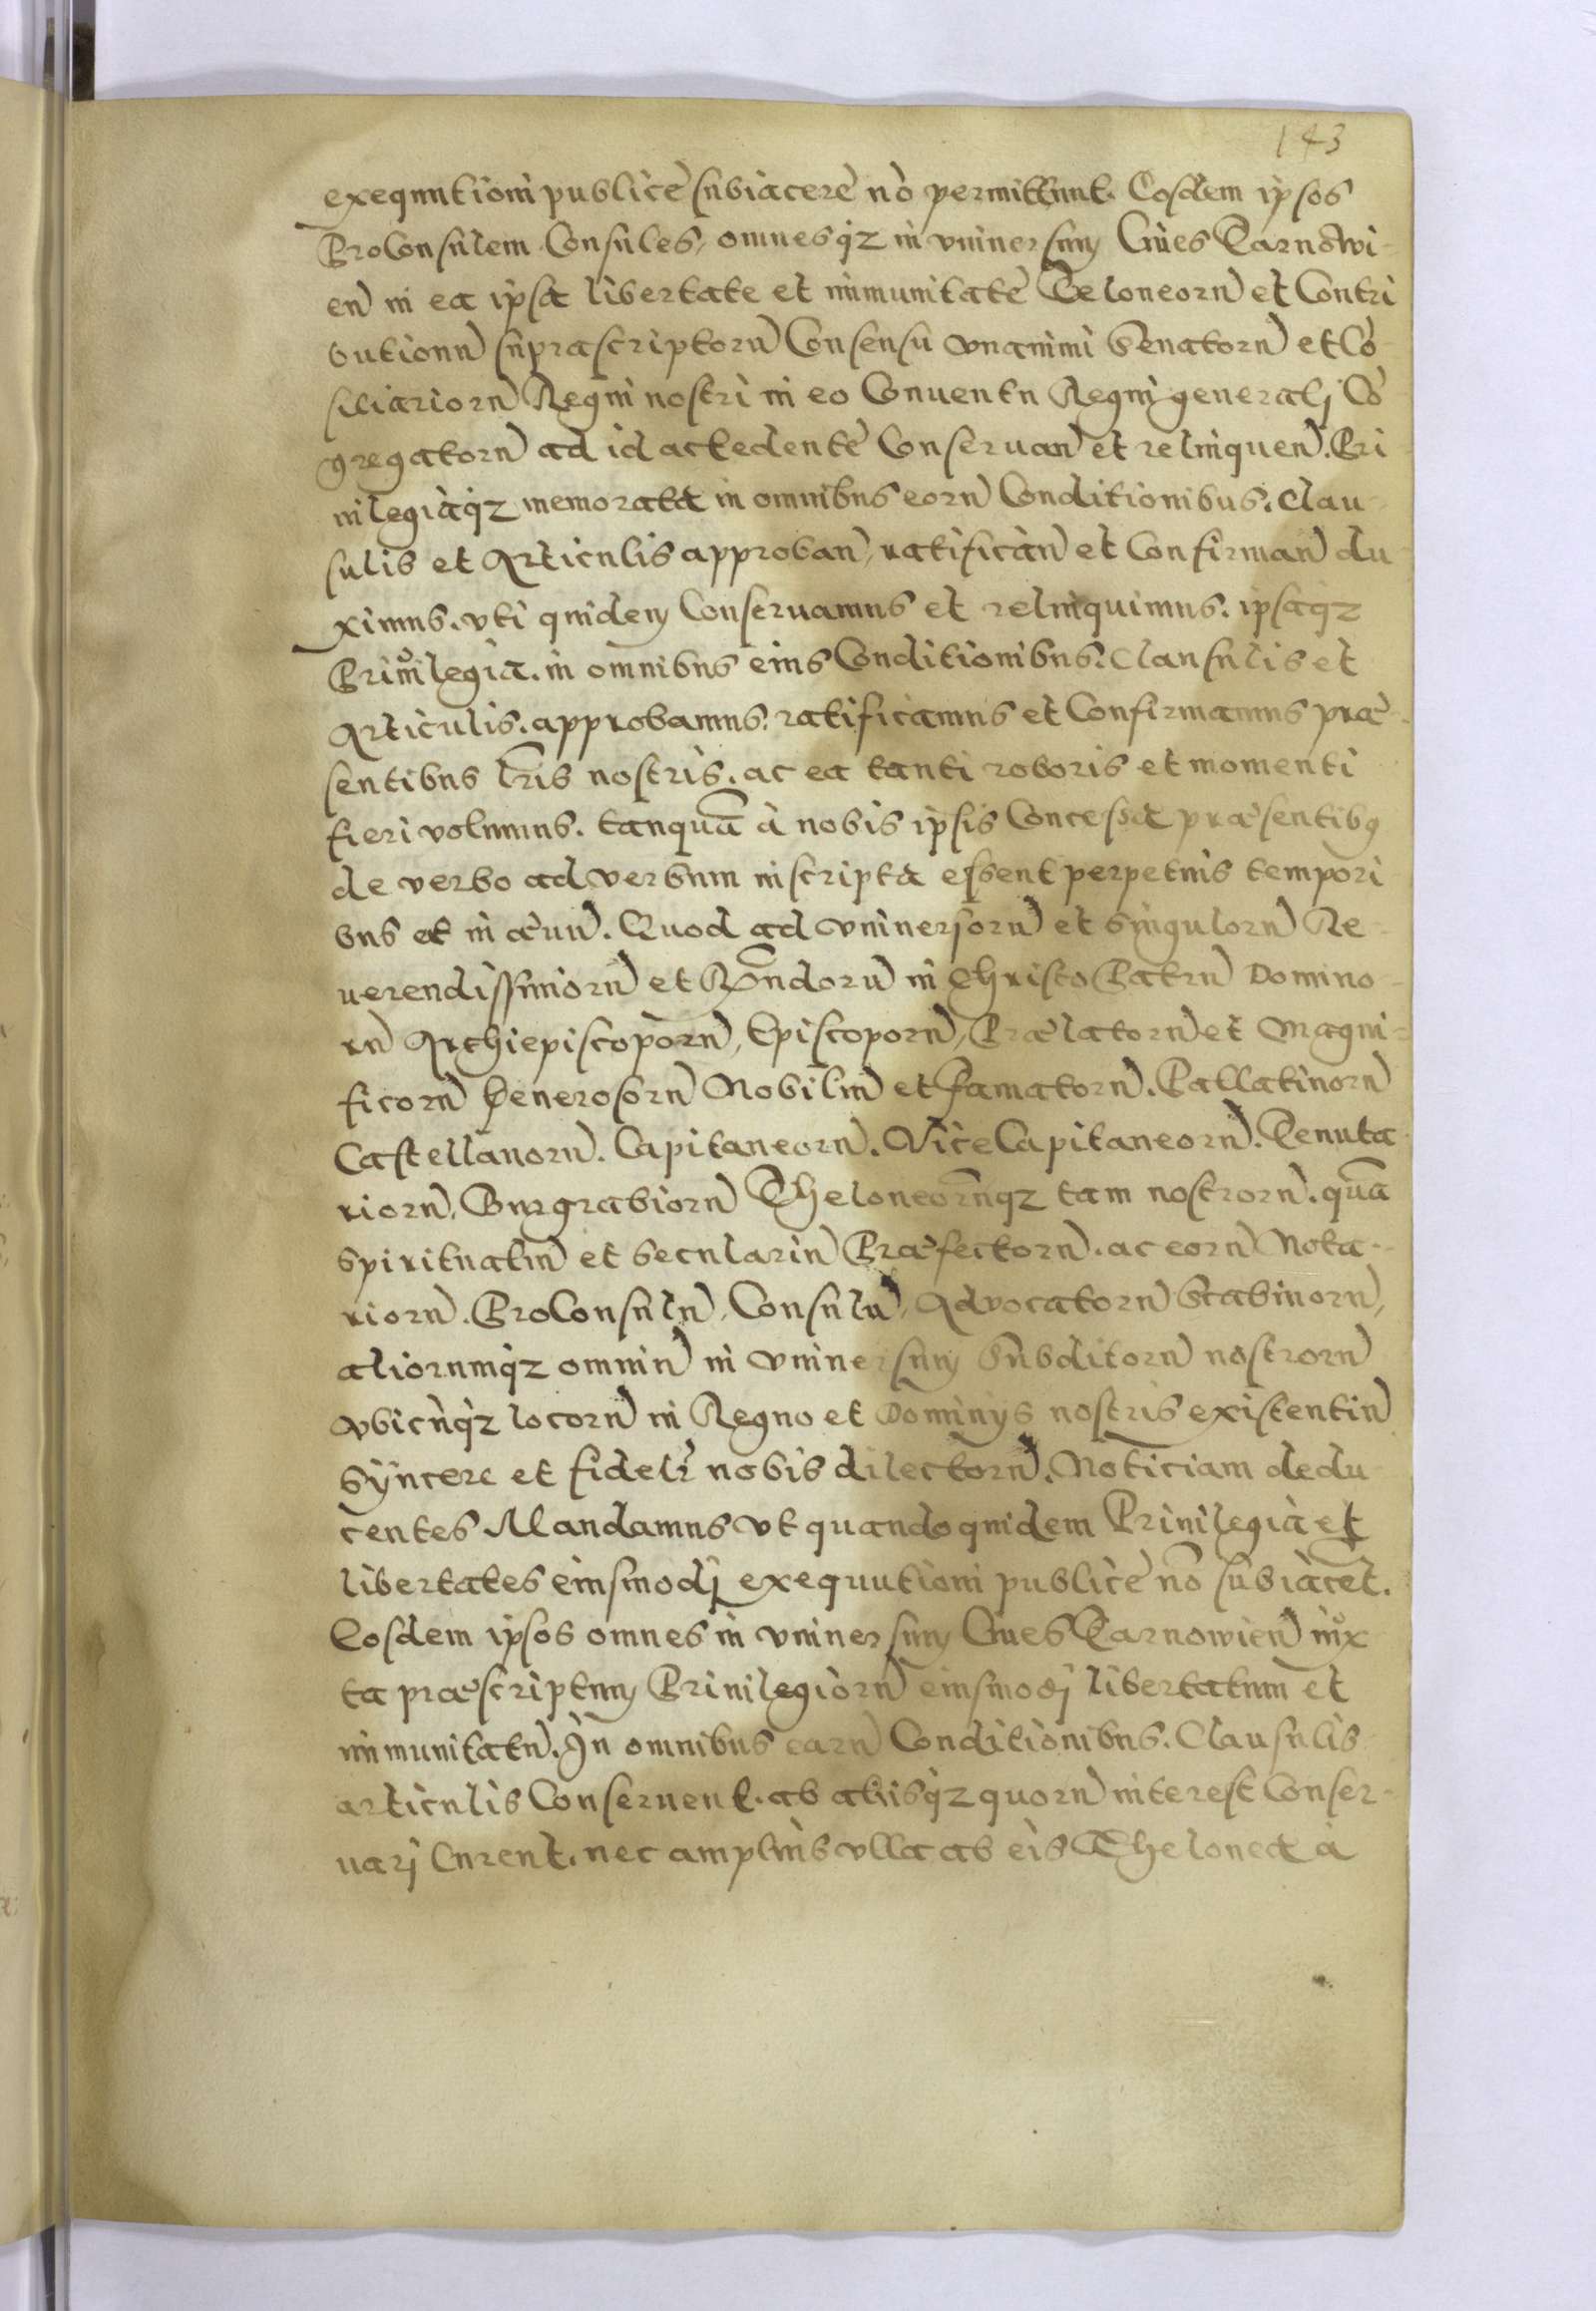 143
exequutioni publicè subiacere nō permittunt. Eosdem ipsos
ProConsulem Consules, omnesqz in vniuersum Ciues Tarnowi-
en̄ in ea ipsa libertate et immunitate Teloneorū et Contri
butionū supra scriptorū Consensu vnanimi Senatorū et Cō
siliariorū Regni nostri in eo Conuentu Regni generalj Cō
gregatorū ad id accedente Conseruan̄ et relinquen̄. Pri
uilegiaqz memorata in omnibus eorū Conditionibus. Clau-
sulis et Articulis approban̄, ratifican̄ et Confirman̄ du
ximus. vti quidem Conseruamus et relinquimus. ipsaqz
Priuilegia. in omnibus eius Conditionibus. Clausulis et
Articulis. approbamus. ratificamus et Confirmamus præ-
sentibus l̄ris nostris. ac ea tanti roboris et momenti
fieri volumus. tanquā à nobis ipsis Concessa præsentibq
de verbo ad verbum inscripta essent perpetuis tempori
bus et in æuū. Quod ad vniuersorū et syngulorū Re-
uerendissimorū et Rn̄dorū in Christo Patrū Domino-
rū Archiepiscoporū, Episcoporū, Prælatorū et Magni-
ficorū Generosorū Nobiliū et Famatorū. Pallatinorū
Castellanorū. Capitaneorū. ViceCapitaneorū. Tenuta
riorū. Burgrabiorū Theloneorūqz tam nostrorū. quā
spiritualiū et seculariū Præfectorū. ac eorū Nota-
riorū. ProConsulū, Consulū, Advocatorū Scabinorū,
aliorumqz omniū in vniuersum Subditorū nostrorū
vbicūqz locorū in Regno et Dominys nostris existentiū
syncere et fidelr̄ nobis dilectorū. Noticiam dedu
centes Mandamus vt quandoquidem Priuilegia et
libertates eiusmodj exequutioni publicè nō subiacēt.
Eosdem ipsos omnes in vniuersum Ciues Tarnowien̄ iux
ta præscriptum Priuilegiorū eiusmodj libertatum et
immunitatū. In omnibus earū Conditionibus. Clausulis
articulis Conseruent. ab alysqz quorū interest Conser-
uarj Curent. nec amplius vlla ab eis Thelonea à